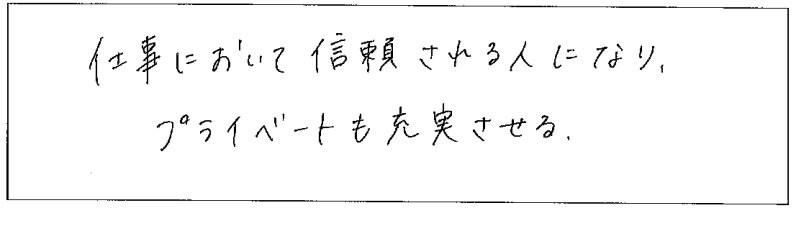 仕事において信頼される人になり、
プライベートも充実させる.